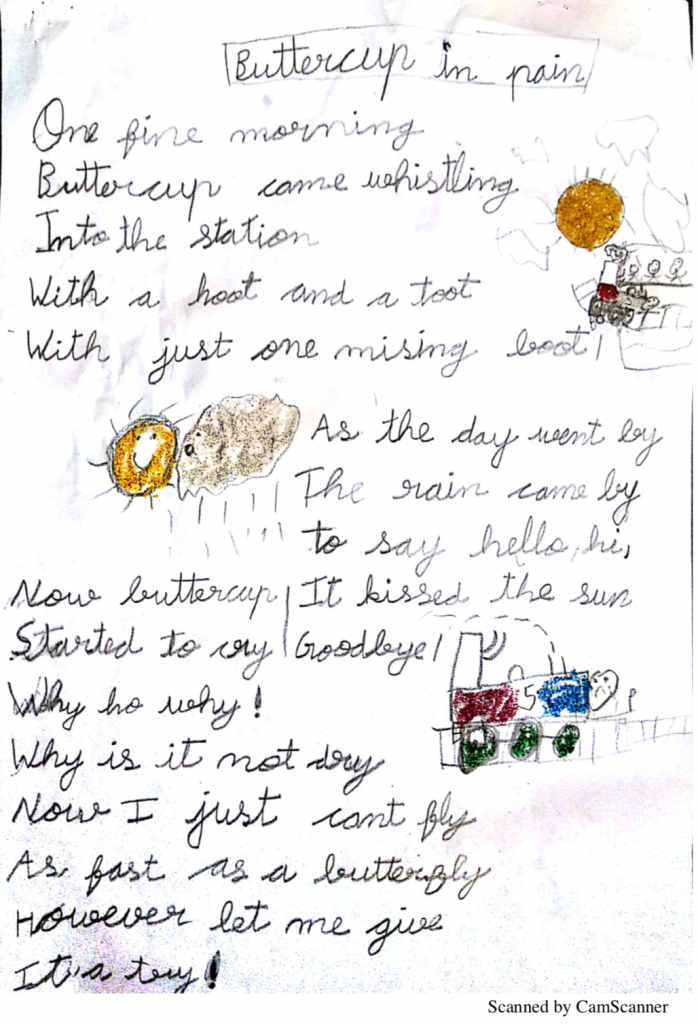 Buttercup in pain
One fine morning
Buttercup came whistling
Into the station
With a hoot and a toot
With just one mising boot!
As the day went by
The rain came by
to say hello, hi,
It kissed the sun
Goodbye!
Now buttercup
Started to cry
Why ho why!
Why is it not dry
Now I just cant fly
As fast as a butterfly
However let me give
It a try!
5
Scanned by CamScanner